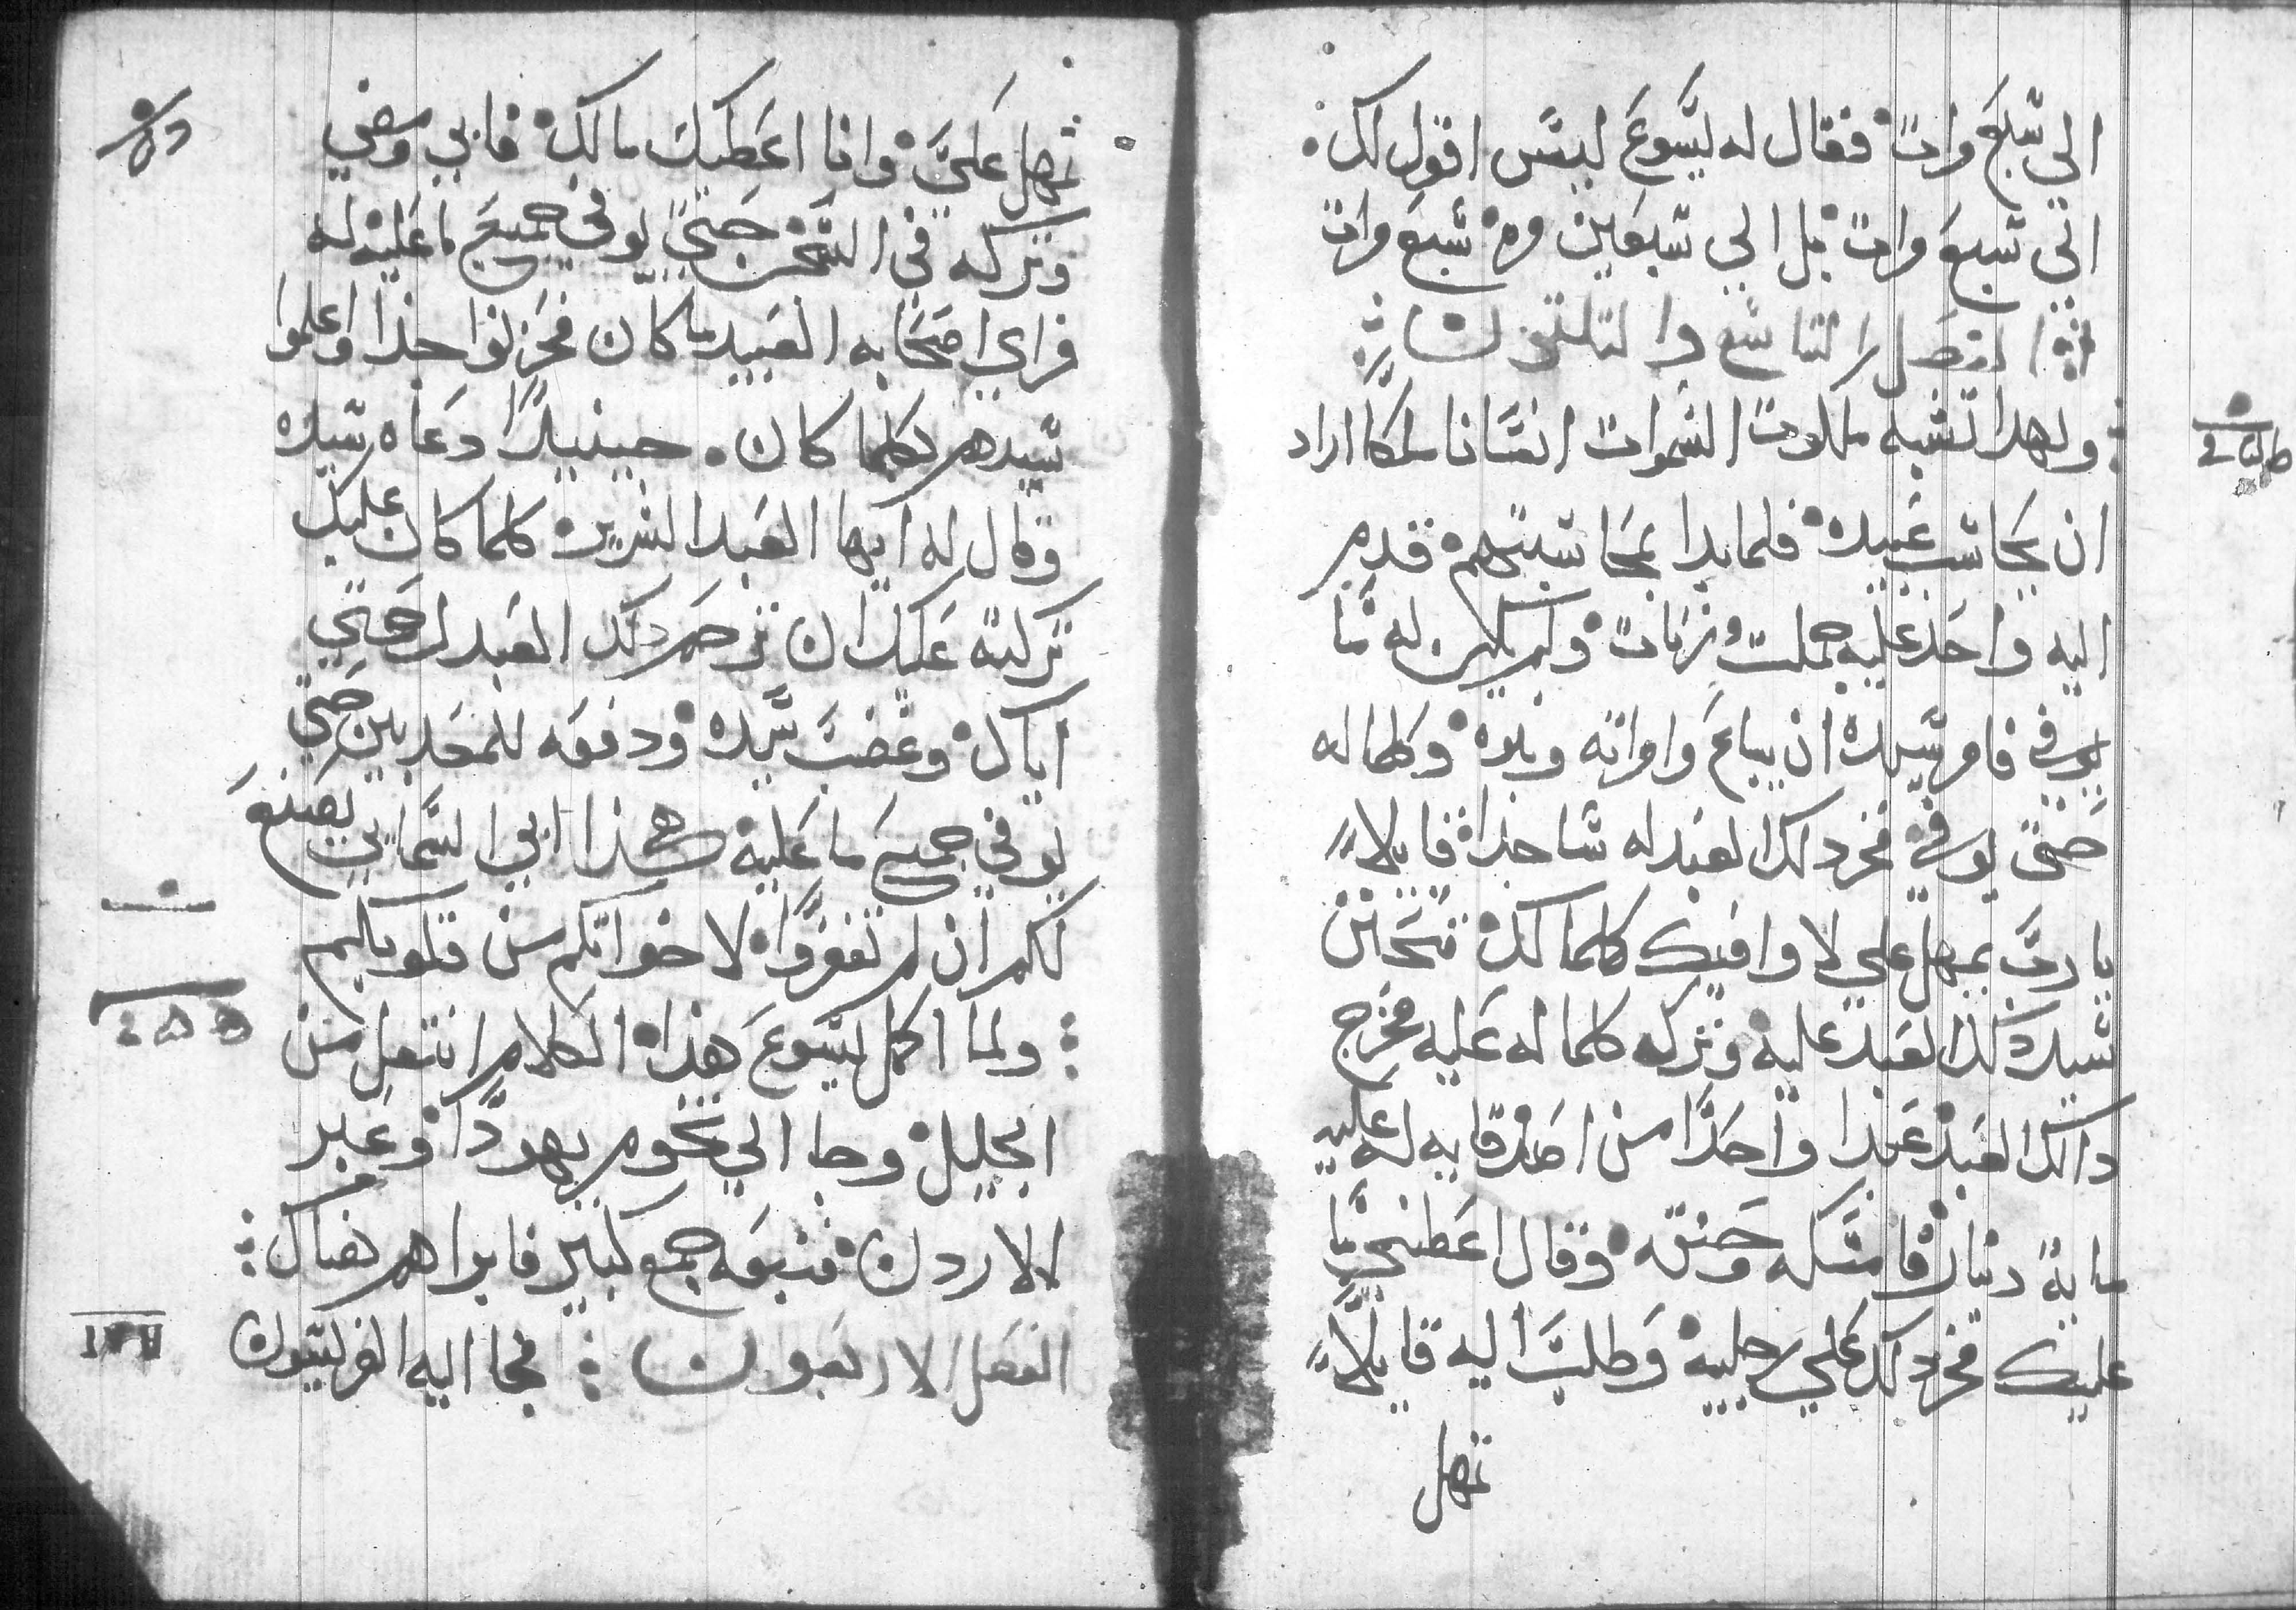 الي سبع مرات فقال له ليسوع ليس اقول لك
الي سبع مرات بل الي سبعين مره سبع مرات
الفصل التاسع والتلتون
ولهدا تشبه ملكوت السموات انسانا ملكا اراد
ان يحاسب عبيده فلما بدا بمحاسبتهم قدم
اليه واحد عليه جملت وزنات ولم يكن له ما
يوفي فامر سيده ان يباع وامراته وبنوه وكلما له
حتى يوفي فخر دلك العبد له ساجدا قايلا
يا رب تمهل علي لاوافيك كلما لك فتحنن
سيد دلك العبد عليه وترك له كلما له عليه فخرج
دالك العبد فوجد عبدا واحدا من اصدقايه له عليه
ماية دينار فامسكه وخنقه وقال اعطني ما
عليك فخر دلك علي رجليه وطلب اليه قايلا
تمهل
تمهل علي وانا اعطيك مالك فابي ومضي
وتركه في السجن حتي يوفي جميع ما عليه له
فراي اصحابه العبيد ما كان فحزنوا جدا واعلموا
سيدهم بكلما كان حينيدا دعاه سيده
وقال له ايها العبد الشرير كلما كان عليك
تركته عليك ان ترحم دلك العبد لرحمتي
اياك وغضب سيده ودفعه للمعدبين حتي
يوفي جميع ما عليه هكذا ابي السمايي يصنع
لكم ان لم تغفروا لاخواتكم من قلوبكم
ولما اكمل ليسوع هذا الكلام انتقل من
الجليل وجا الي تخوم يهودا وعبر
الاردن فتبعه جمع كبير فابراهم هناك
الفصل الاربعون فجا اليه الفريسيون